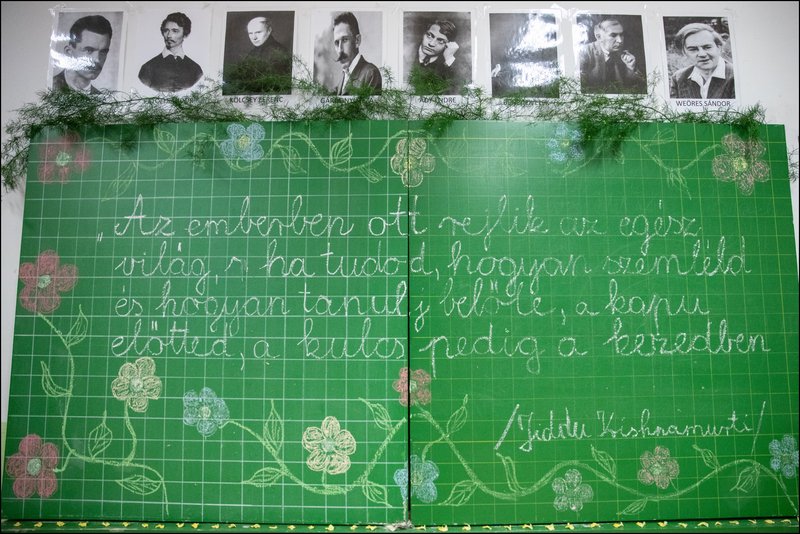 KÖLCSEY FERENC
ADY ENDRE
WEÖRES SÁNDOR
„Az emberben ott rejlik az egész
világ, s ha tudod, hogyan szemléld
és hogyan tanulj belőle, a kapu
előtted, a kulcs pedig a kezedben
/Jiddu Krishnamurti/